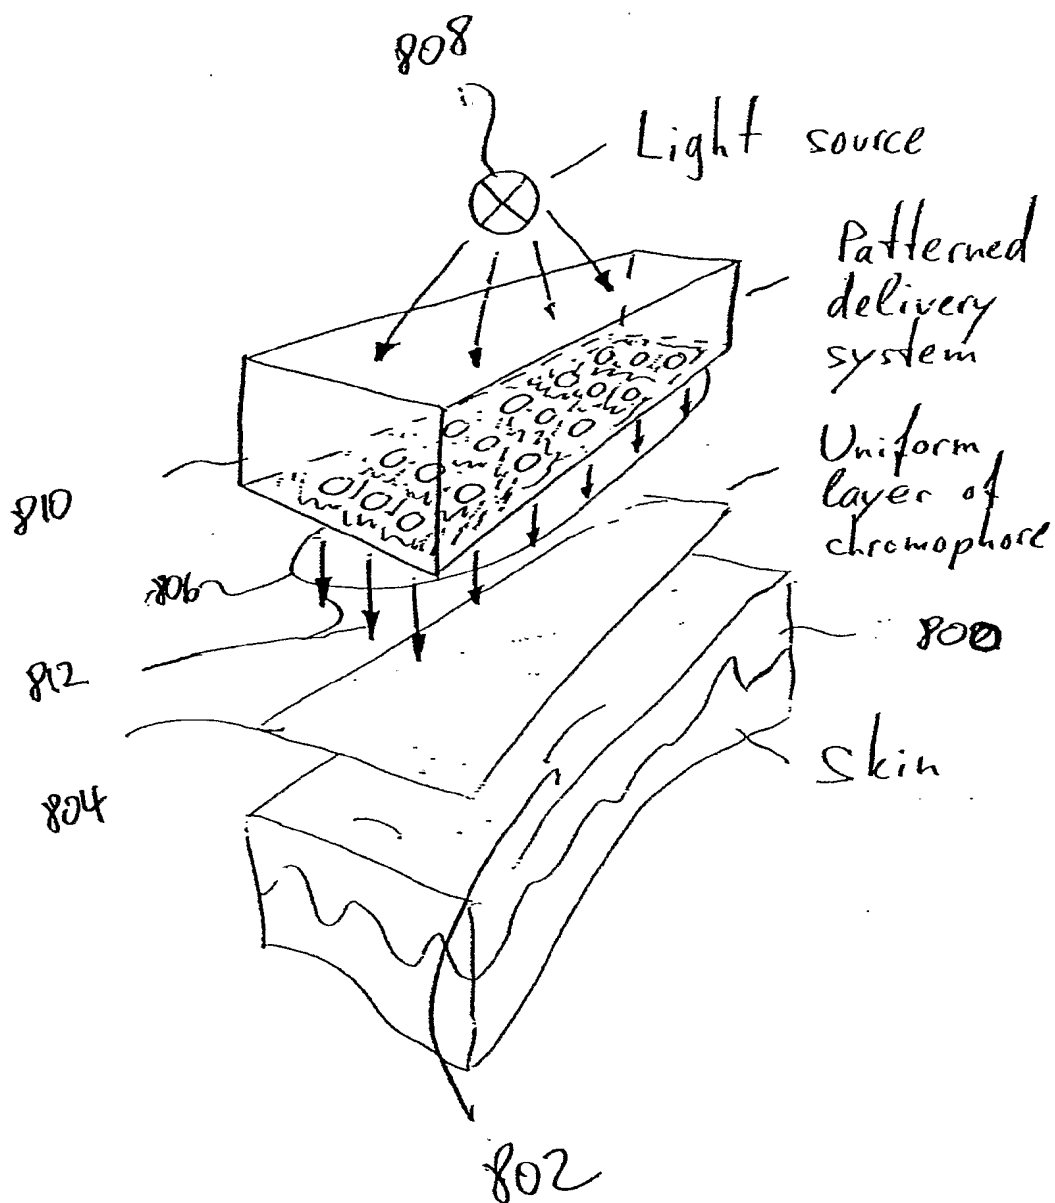 808
Light source
Patterned
delivery
system
Uniform
layer of
chromophore
810
806
800
812
Skin
804
802